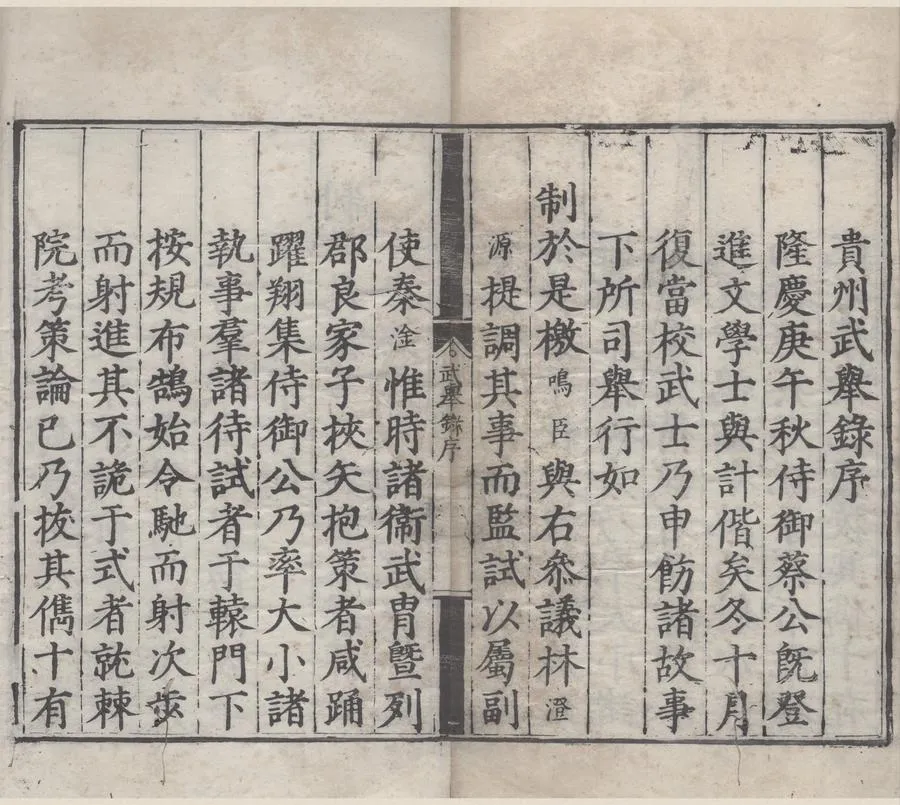 貴州武舉錄序
隆慶庚午秋侍御蔡公旣登
進文學士與計偕矣冬十月
復當校武士乃申飭諸故事
下所司舉行如
制於是檄鳴臣與右叅議林澄
源提調其事而監試以屬副
武舉錄序
使秦淦惟時諸衞武冑曁列
郡良家子挾矢抱策者咸踊
躍翔集侍御公乃率大小諸
執事羣諸待試者于轅門下
桉規布鵠始令馳而射次步
而射進其不詭于式者就棘
院考策論已乃拔其儁十有